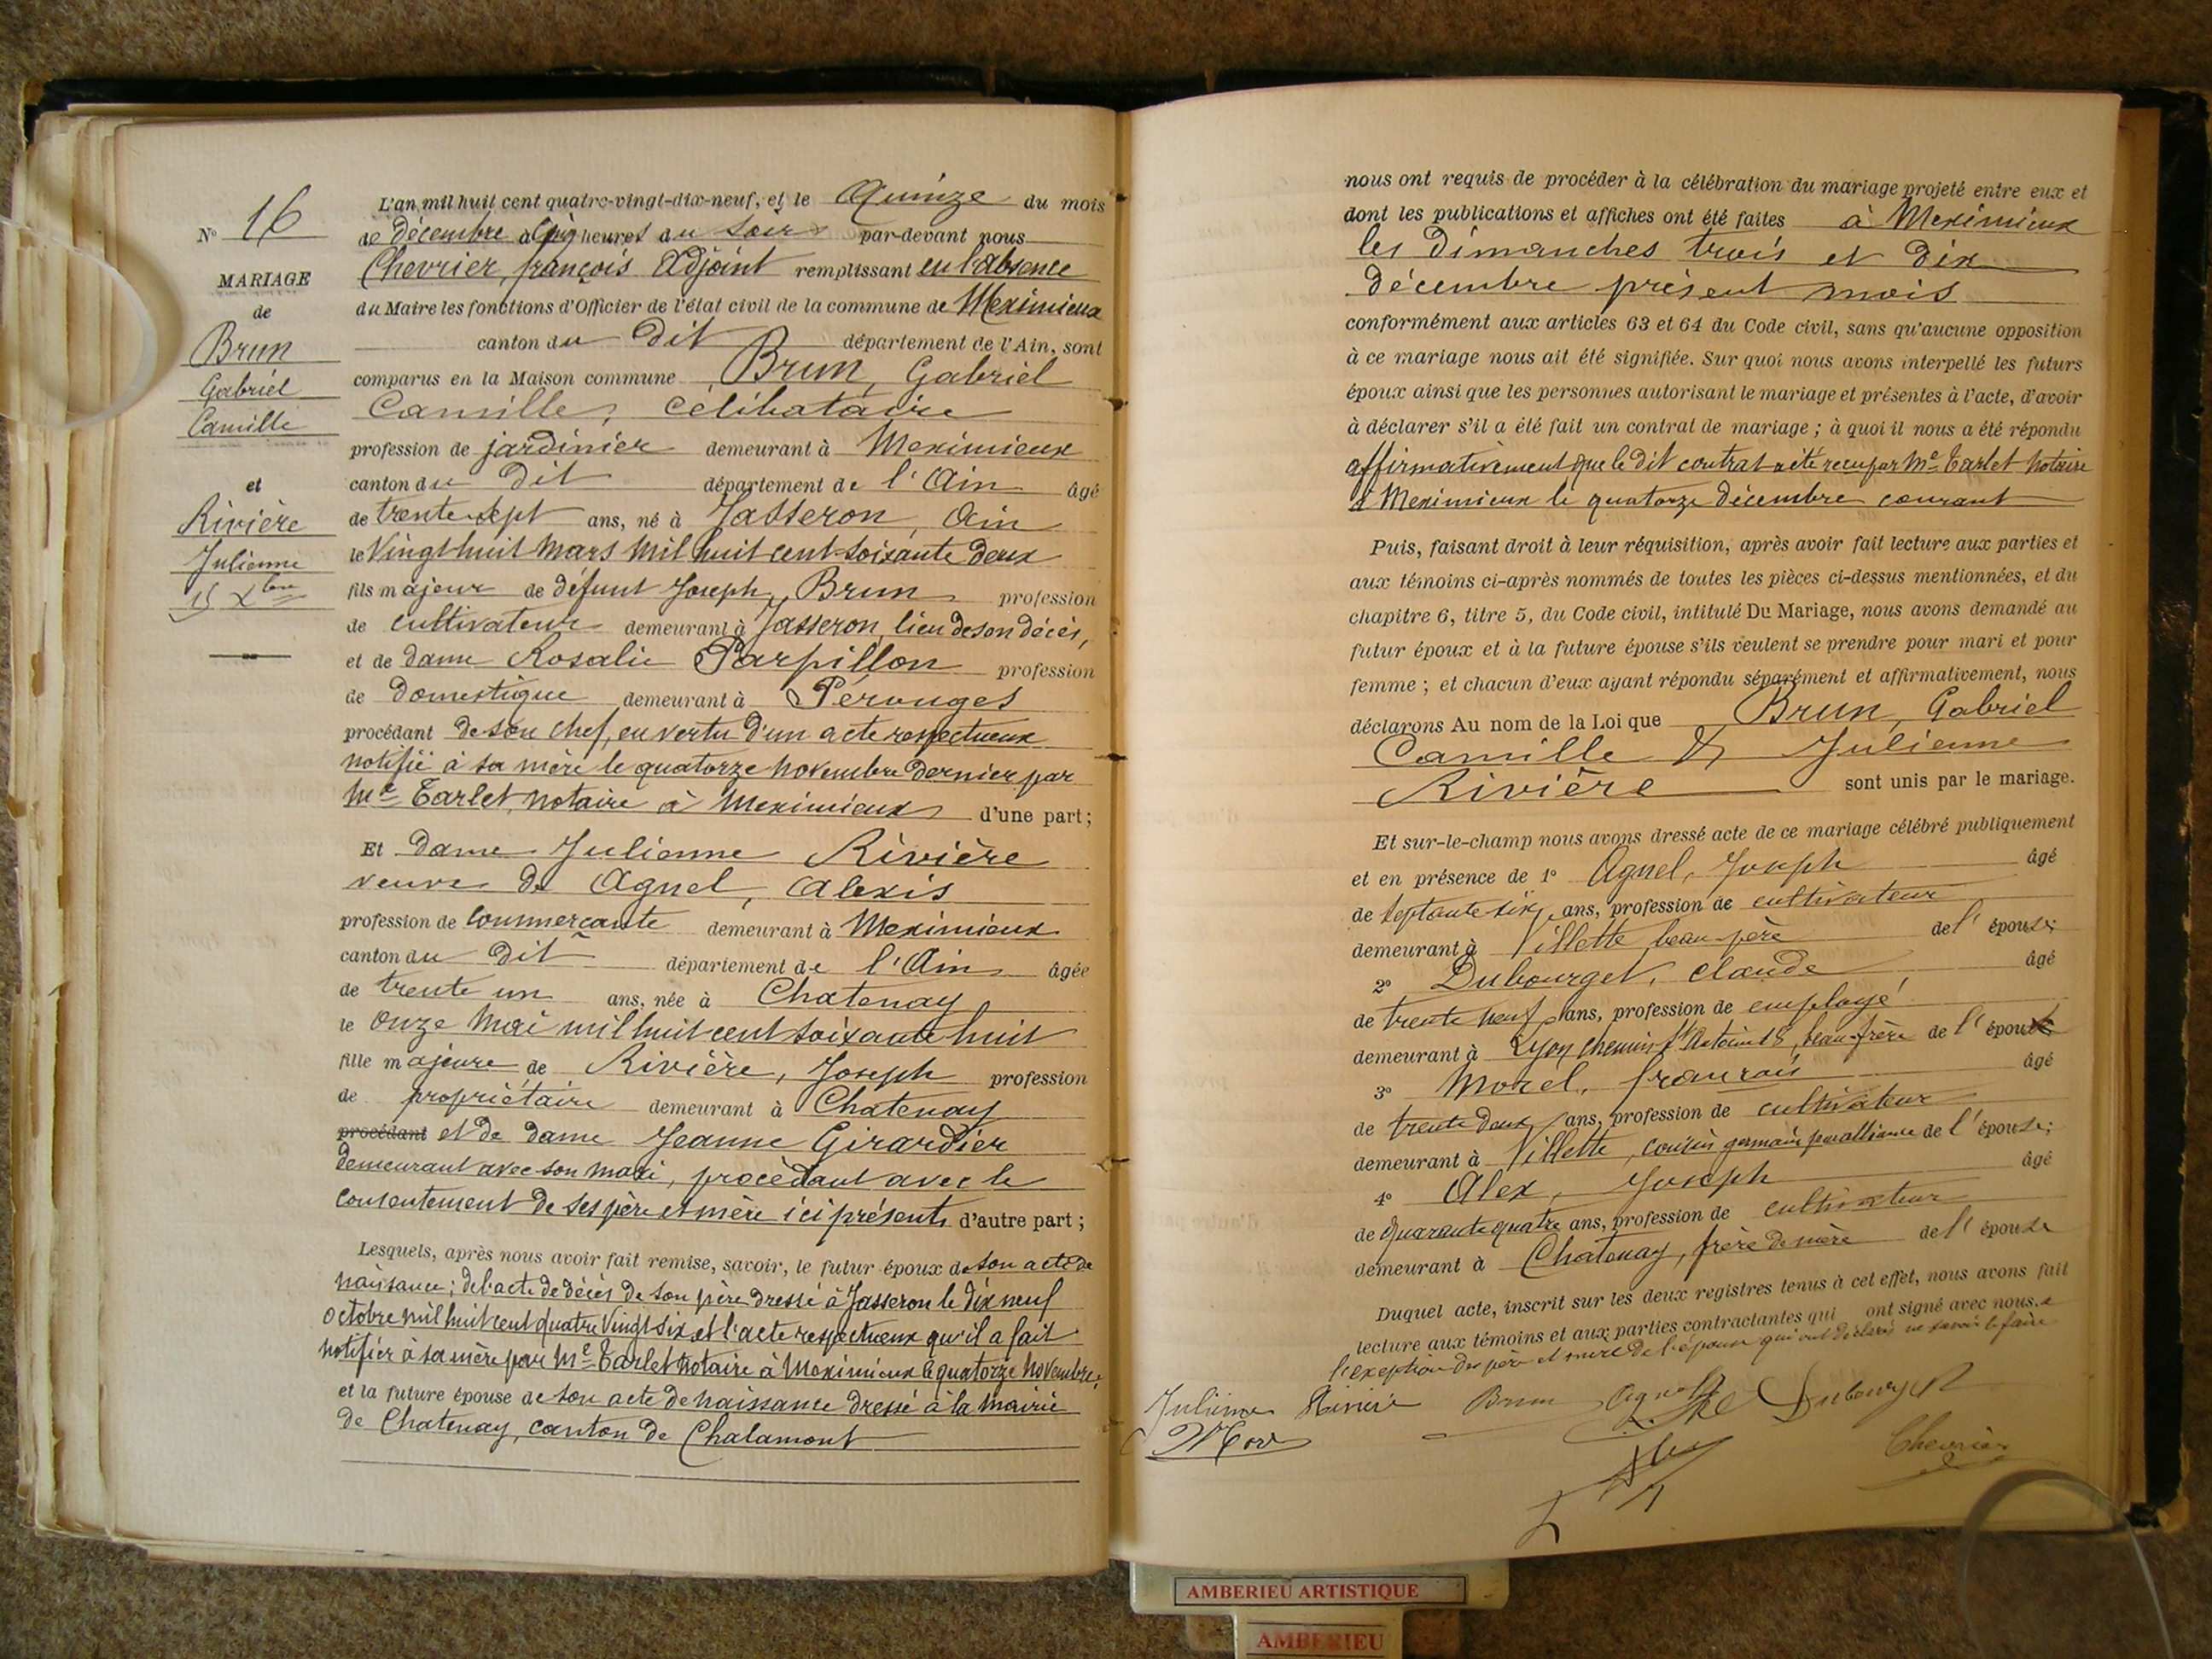 N° 16
MARIAGE
de
Brun
Gabriel
Camille
et
Rivière
Julienne
15 Xbre
L'an mil huit cent quatre-vingt-dix-neuf, et le Quinze du mois
de décembre à cinq heures du soir par-devant nous
Chevrier, françois Adjoint remplissant en l'absence
du Maire les fonctions d'Officier de l'état civil de la commune de Meximieux
canton du dit département de l'Ain, sont
comparus en la Maison commune Brun, Gabriel
Camille, célibataire
profession de jardinier demeurant à Meximieux
canton du dit département de l'Ain âgé
de trente sept ans, né à Jasseron, Ain
le Vingt huit Mars mil huit cent soixante deux
fils majeur de défunt Joseph Brun profession
de cultivateur demeurant à Jasseron, lieu de son décès,
et de dame Rosalie Parpillon profession
de domestique demeurant à Pérouges
procédant de son chef, en vertu d'un acte respectueux
notifié à sa mère le quatorze novembre dernier par
Me Tarlet, notaire à Meximieux d'une part;
Et dame Julienne Rivière
veuve de Agnel, Alexis
profession de Commerçante demeurant à Meximieux
canton du dit département de l'Ain âgée
de trente un ans, née à Chatenay
le onze Mai mil huit cent soixante huit
fille majeure de Rivière, Joseph profession
de propriétaire demeurant à Chatenay
procédant et de dame Jeanne Girardier
demeurant avec son mari, procédant avec le
consentement de ses père et mère ici présents d'autre part;
Lesquels, après nous avoir fait remise, savoir, le futur époux de son acte de
naissance; de l'acte de décès de son père dressé à Jasseron le dix neuf
octobre mil huit cent quatre vingt six et l'acte respectueux qu'il a fait
notifier à sa mère par Me Tarlet notaire à Meximieux le quatorze novembre;
et la future épouse de son acte de naissance dressé à la mairie
de Chatenay, canton de Chalamont
nous ont requis de procéder à la célébration du mariage projeté entre eux et
dont les publications et affiches ont été faites à Meximieux
les dimanches trois et dix
décembre présent mois
conformément aux articles 63 et 64 du Code civil, sans qu'aucune opposition
à ce mariage nous ait été signifiée. Sur quoi nous avons interpellé les futurs
époux ainsi que les personnes autorisant le mariage et présentes à l'acte, d'avoir
à déclarer s'il a été fait un contrat de mariage; à quoi il nous a été répondu
affirmativement que le dit contrat a été reçu par Me Tarlet notaire
à Meximieux le quatorze décembre courant
Puis, faisant droit à leur réquisition, après avoir fait lecture aux parties et
aux témoins ci-après nommés de toutes les pièces ci-dessus mentionnées, et du
chapitre 6, titre 5, du Code civil, intitulé Du Mariage, nous avons demandé au
futur époux et à la future épouse s'ils veulent se prendre pour mari et pour
femme; et chacun d'eux ayant répondu séparément et affirmativement, nous
déclarons Au nom de la Loi que Brun, Gabriel
Camille & Julienne
Rivière sont unis par le mariage.
Et sur-le-champ nous avons dressé acte de ce mariage célébré publiquement
et en présence de 1° Agnel, Joseph âgé
de septante six ans, profession de cultivateur
demeurant à Villette beau-père de l'épouse;
2° Dubourget, claude âgé
de trente neuf ans, profession de employé
demeurant à Lyon chemin St Antoine 18, beau-frère de l'époux
3° Morel, françois âgé
de trente deux ans, profession de cultivateur
demeurant à Villette, cousin germain par alliance de l'épouse;
4° Alex, Joseph âgé
de quarante quatre ans, profession de cultivateur
demeurant à Chatenay, frère de mère de l'épouse
Duquel acte, inscrit sur les deux registres tenus à cet effet, nous avons fait
lecture aux témoins et aux parties contractantes qui ont signé avec nous. à
l'exception des père et mère de l'épouse qui ont déclaré ne savoir le faire
Julienne Rivière Brun Agnel Dubourget
Morel
Alex
Chevrier
AMBERIEU ARTISTIQUE
AMBERIEU